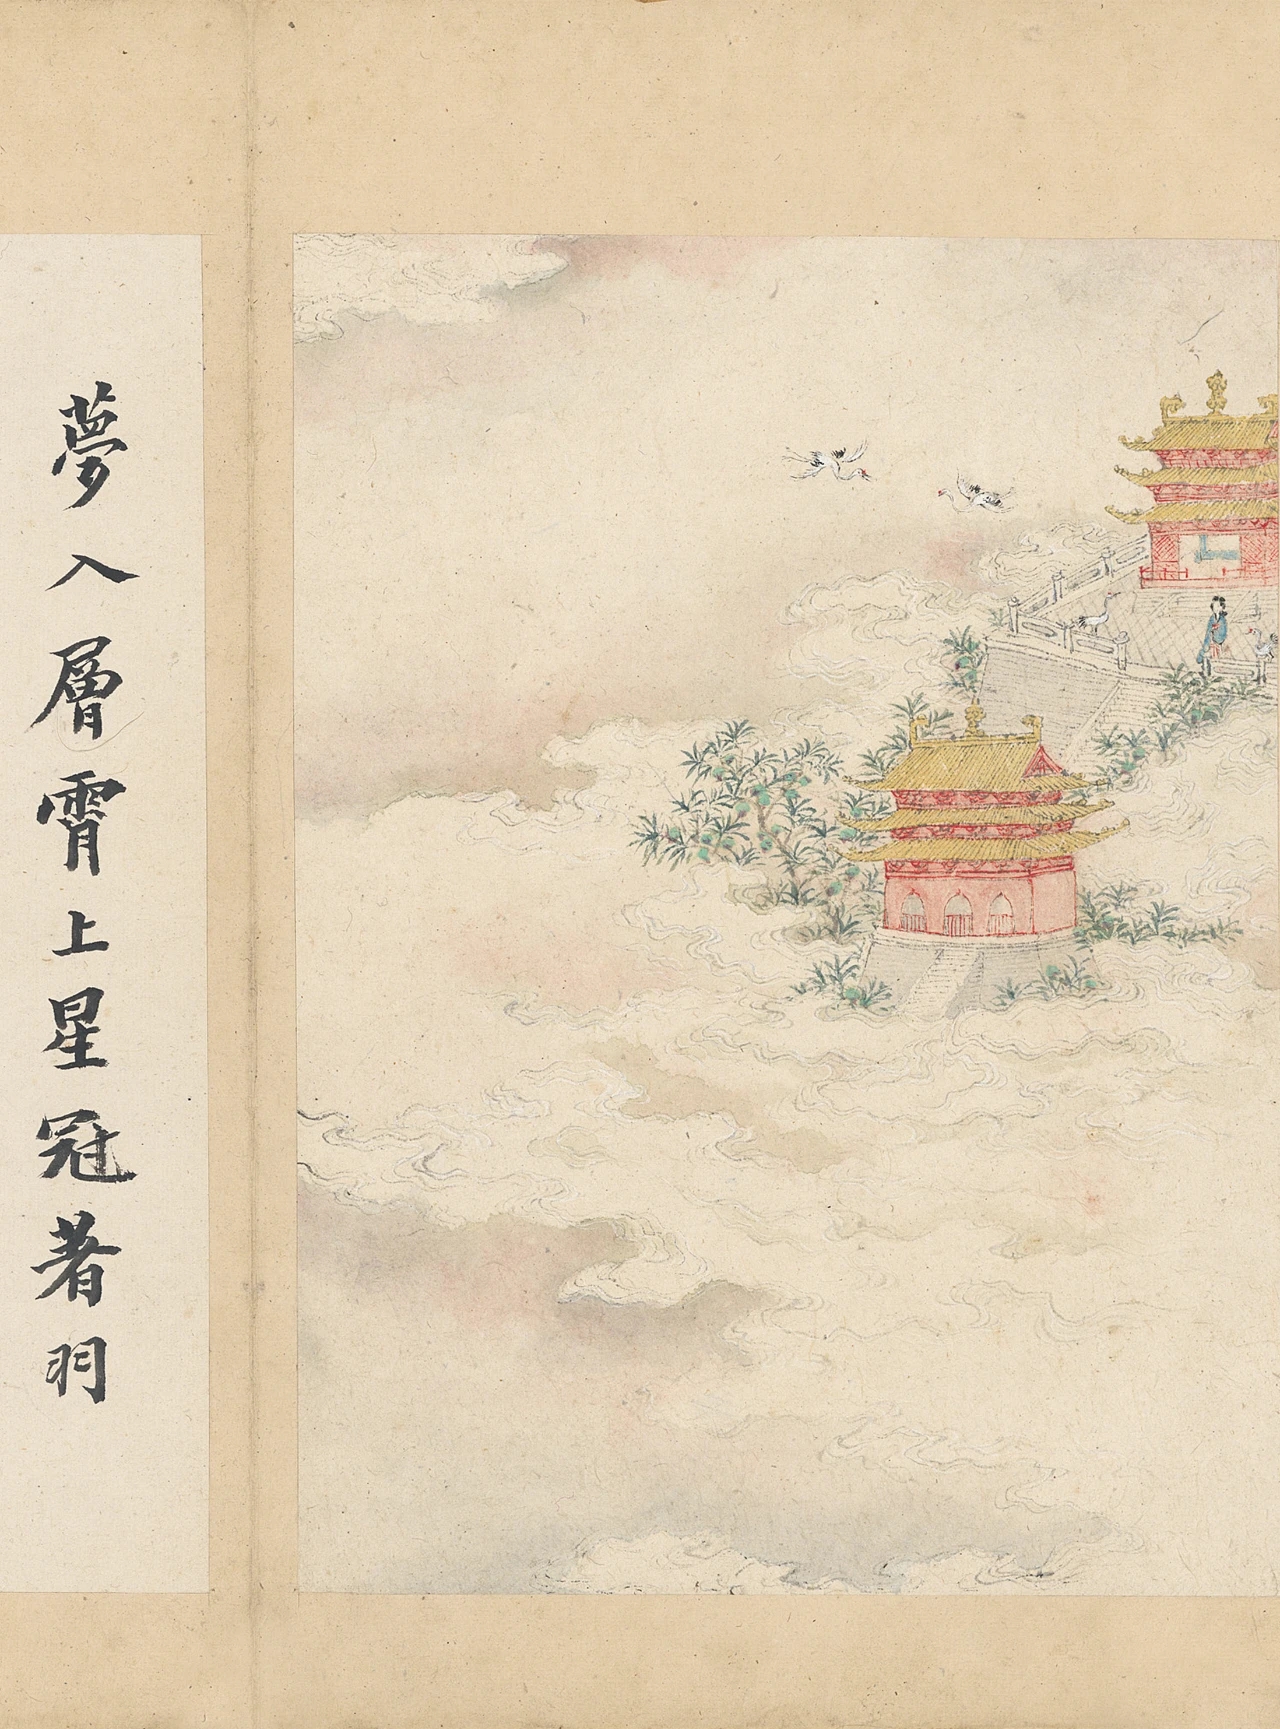 夢入層霄上星冠著羽